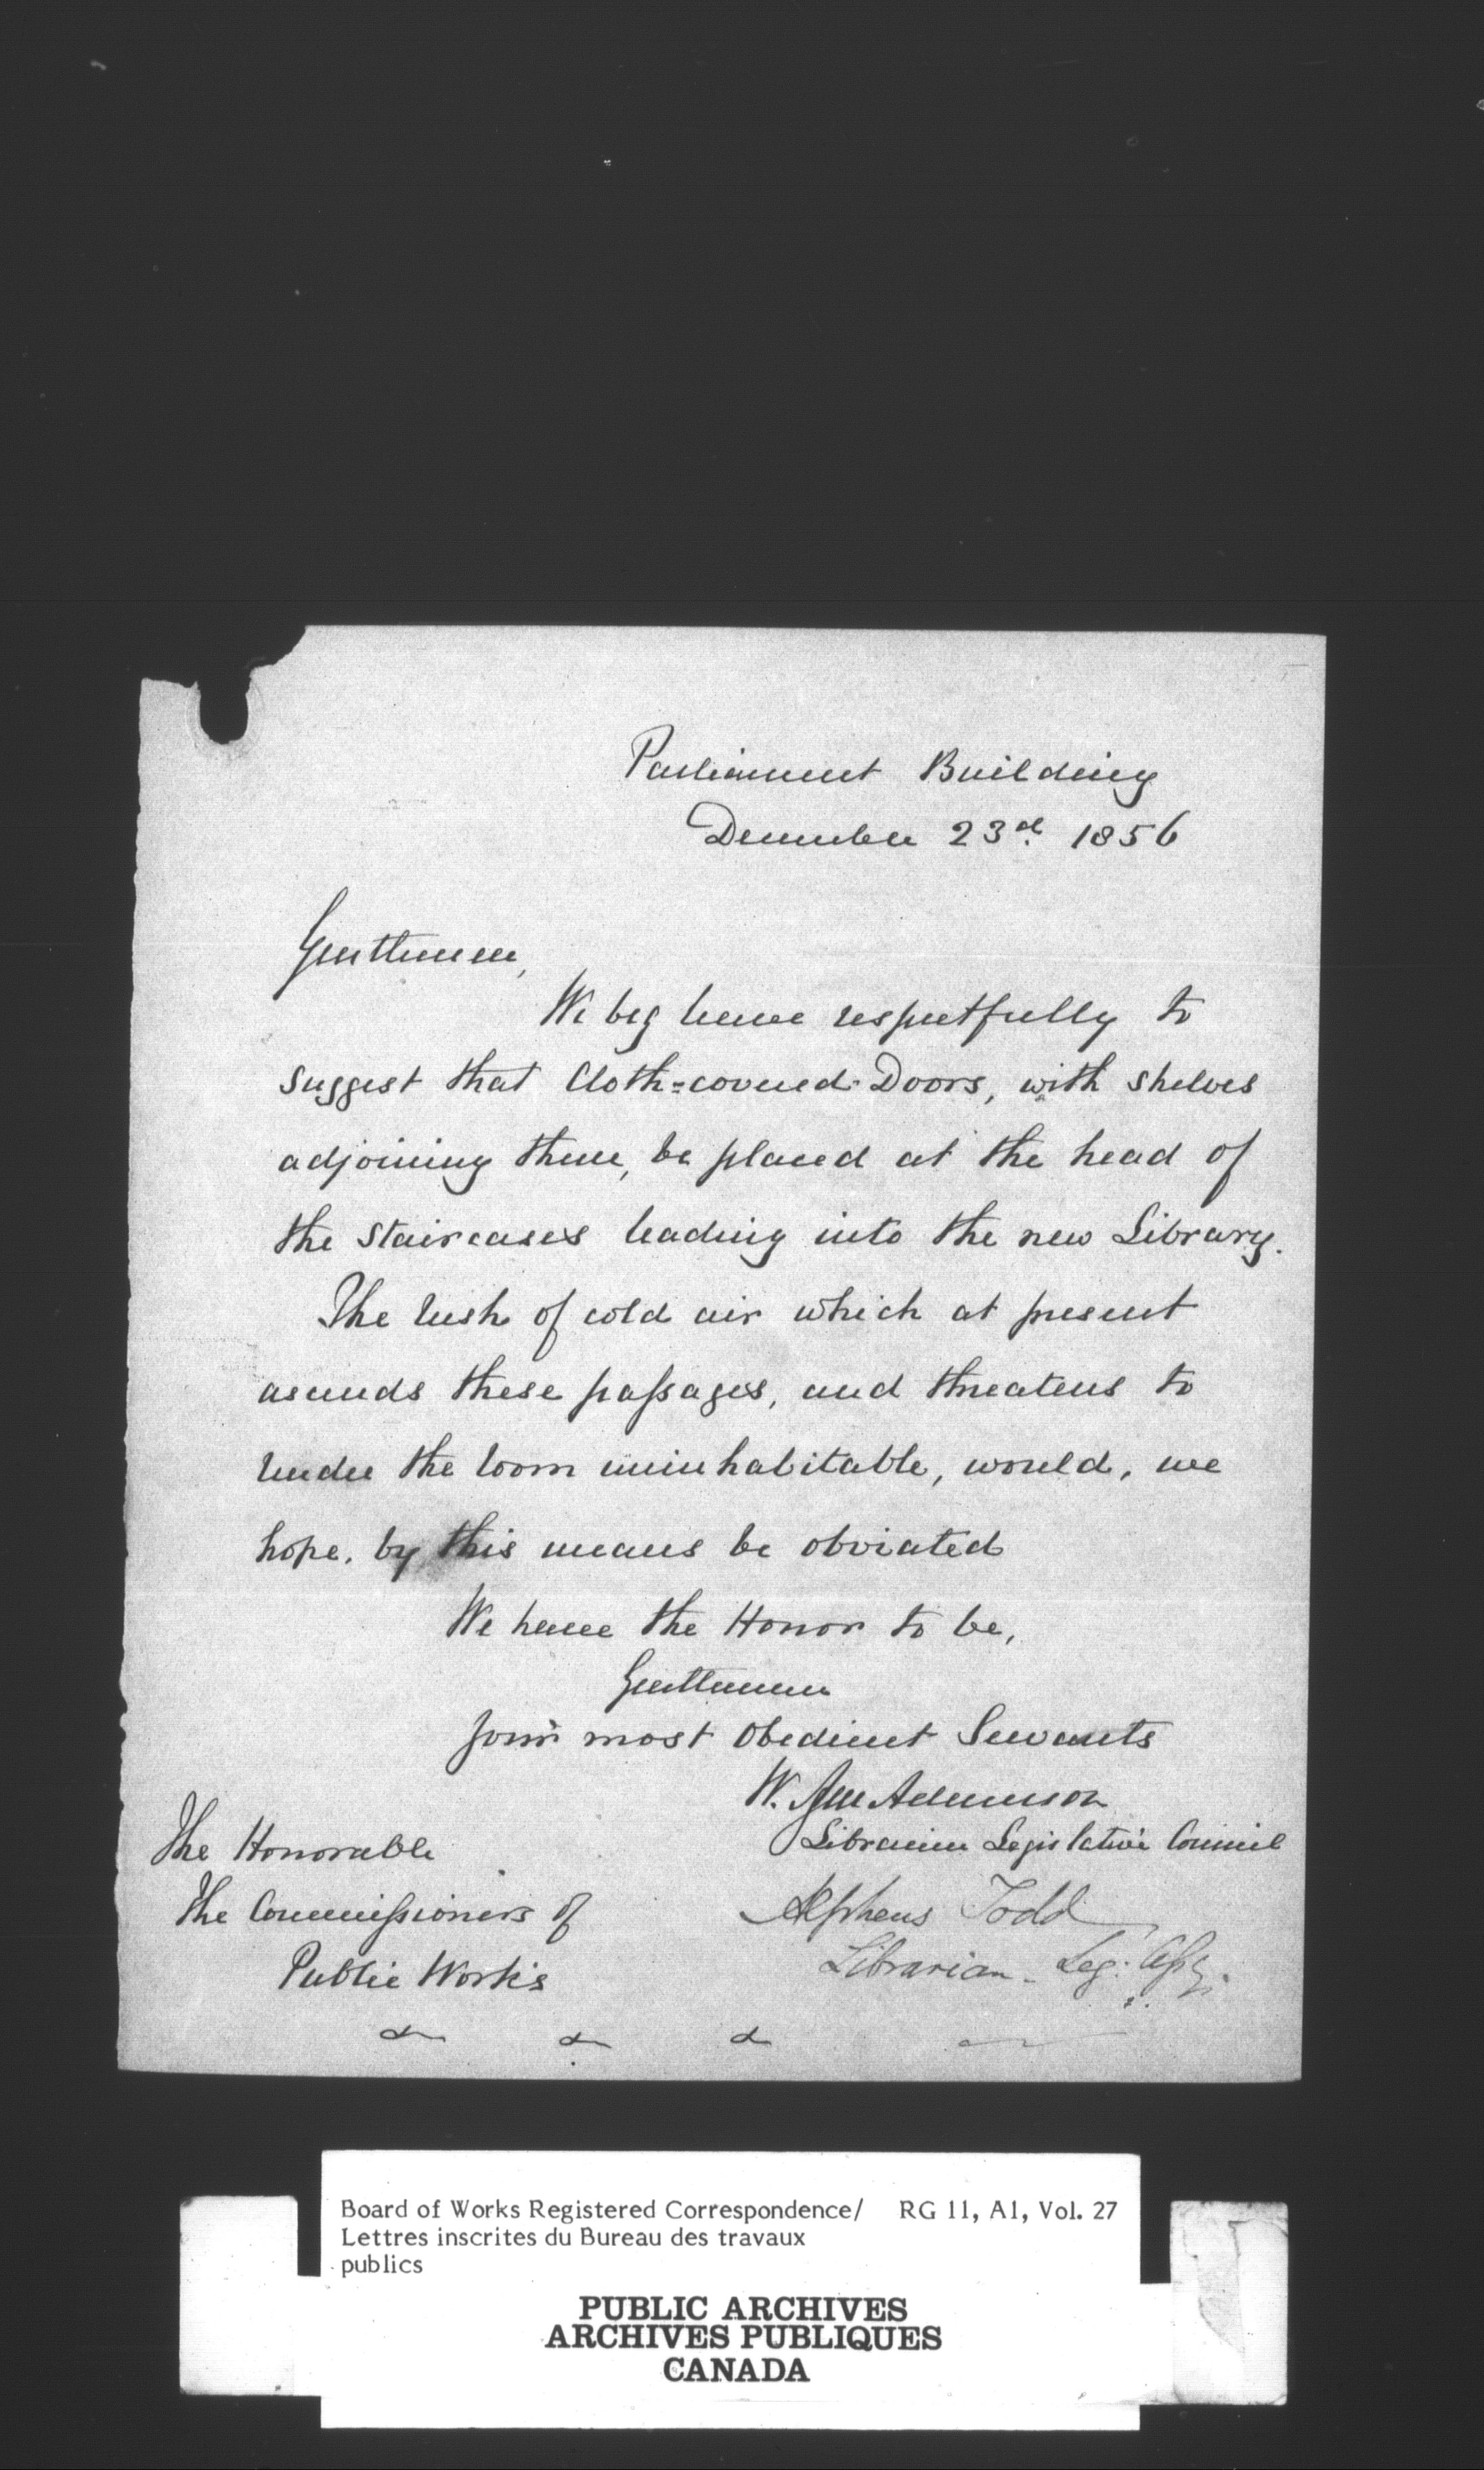 Parliament Building
December 23rd. 1856
Gentlemen,
We beg leave respectfully to
suggest that Cloth=covered Doors, with shelves
adjoining them, be placed at the head of
the Staircases leading into the new Library.
The rush of cold air which at present
ascends these passages, and threatens to
render the room uninhabitable, would, we
hope, by this means be obviated
We have the Honor to be,
Gentlemen
Your most Obedient Servants
W. Adamson
Librarian Legislative Council
Alpheus Todd
Librarian - Leg: Assy.
The Honorable
The Commissioners of
Public Works
&c &c &c
Board of Works Registered Correspondence/ RG 11, A1, Vol. 27
Lettres inscrites du Bureau des travaux
publics
PUBLIC ARCHIVES
ARCHIVES PUBLIQUES
CANADA